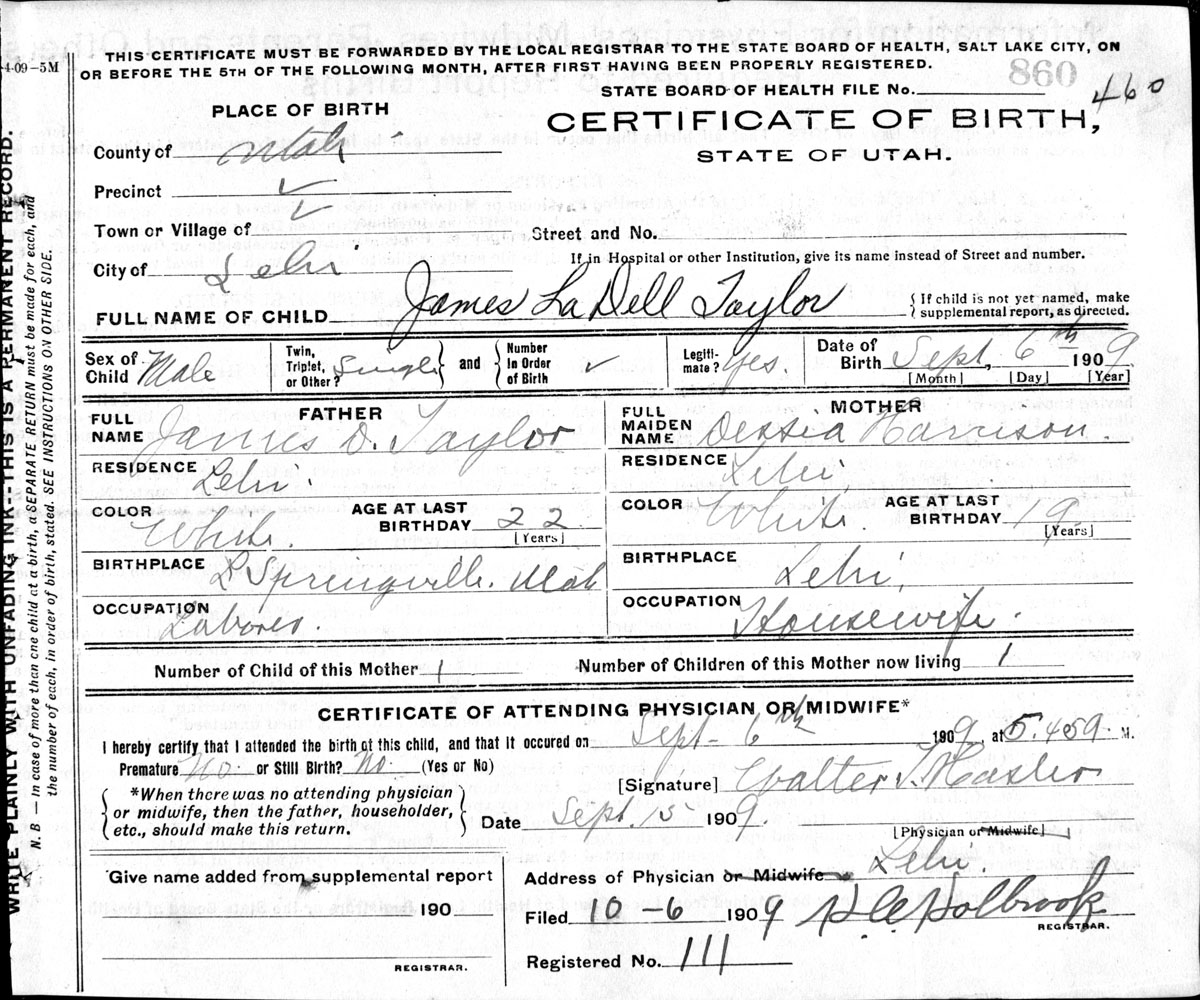 THIS CERTIFICATE MUST BE FORWARDED BY THE LOCAL REGISTRAR TO THE STATE BOARD OF HEALTH, SALT LAKE CITY, ON
OR BEFORE THE 5TH OF THE FOLLOWING MONTH, AFTER FIRST HAVING BEEN PROPERLY REGISTERED.
4-09-5M
860
STATE BOARD OF HEALTH FILE No. 460
PLACE OF BIRTH
CERTIFICATE OF BIRTH,
STATE OF UTAH.
County of Utah
Precinct ✓
Town or Village of ✓ Street and No.
City of Lehi If in Hospital or other Institution, give its name instead of Street and number.
FULL NAME OF CHILD James LaDell Taylor { If child is not yet named, make supplemental report, as directed.
Sex of Child Male Twin, Triplet, or Other? Single } and { Number in Order of Birth ✓ Legitimate? Yes. Date of Birth Sept, 6th 1909
[Month] [Day] [Year]
FATHER MOTHER
FULL NAME James D. Taylor FULL MAIDEN NAME Harrison.
RESIDENCE Lehi. RESIDENCE Lehi,
COLOR White. AGE AT LAST BIRTHDAY 22 [Years] COLOR White. AGE AT LAST BIRTHDAY 19 [Years]
BIRTHPLACE Springville. Utah BIRTHPLACE Lehi,
OCCUPATION Laborer. OCCUPATION Housewife.
Number of Child of this Mother 1 Number of Children of this Mother now living 1
CERTIFICATE OF ATTENDING PHYSICIAN OR MIDWIFE*
I hereby certify that I attended the birth of this child, and that it occured on Sept- 6th 1909 at M.
Premature No. or Still Birth? No. (Yes or No)
[Signature] Walter
{ *When there was no attending physician
or midwife, then the father, householder,
etc., should make this return. }
Date Sept. 15 1909.
[Physician or Midwife]
Give name added from supplemental report
190
REGISTRAR.
Address of Physician or Midwife Lehi.
Filed 10-6 1909 Holbrook
REGISTRAR.
Registered No. 111
WRITE PLAINLY WITH UNFADING INK--THIS IS A PERMANENT RECORD.
N. B.—In case of more than one child at a birth, a SEPARATE RETURN must be made for each, and
the number of each, in order of birth, stated. SEE INSTRUCTIONS ON OTHER SIDE.